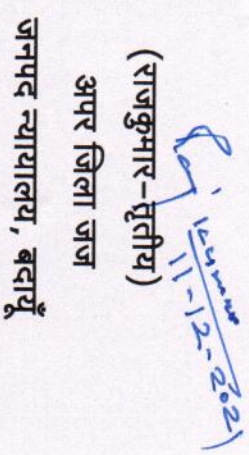 Raj Kumar
11-12-2021
(राजकुमार-तृतीय)
अपर जिला जज
जनपद न्यायालय, बदायूँ